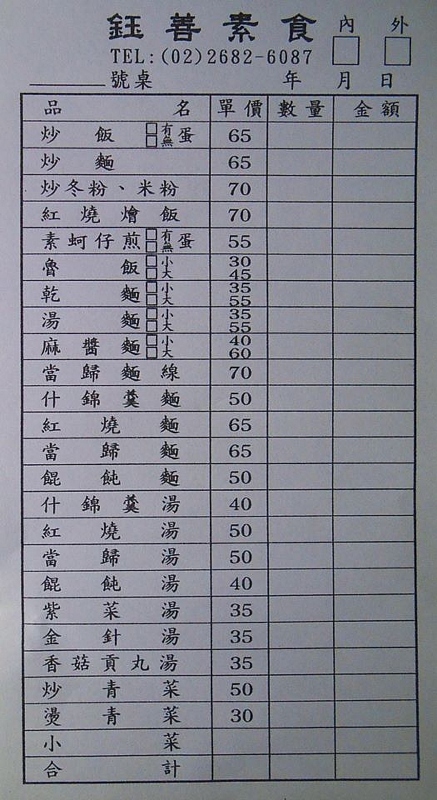 鈺善素食 內 外
TEL:(02)2682-6087
號桌 年 月 日
品名 單價 數量 金額
炒飯 有無蛋 65
炒麵 65
炒冬粉、米粉 70
紅燒燴飯 70
素蚵仔煎 有無蛋 55
魯飯 小 30 大 45
乾麵 小 35 大 55
湯麵 小 35 大 55
麻醬麵 小 40 大 60
當歸麵線 70
什錦羹麵 50
紅燒麵 65
當歸麵 65
餛飩麵 50
什錦羹湯 40
紅燒湯 50
當歸湯 50
餛飩湯 40
紫菜湯 35
金針湯 35
香菇貢丸湯 35
炒青菜 50
燙青菜 30
小菜
合計